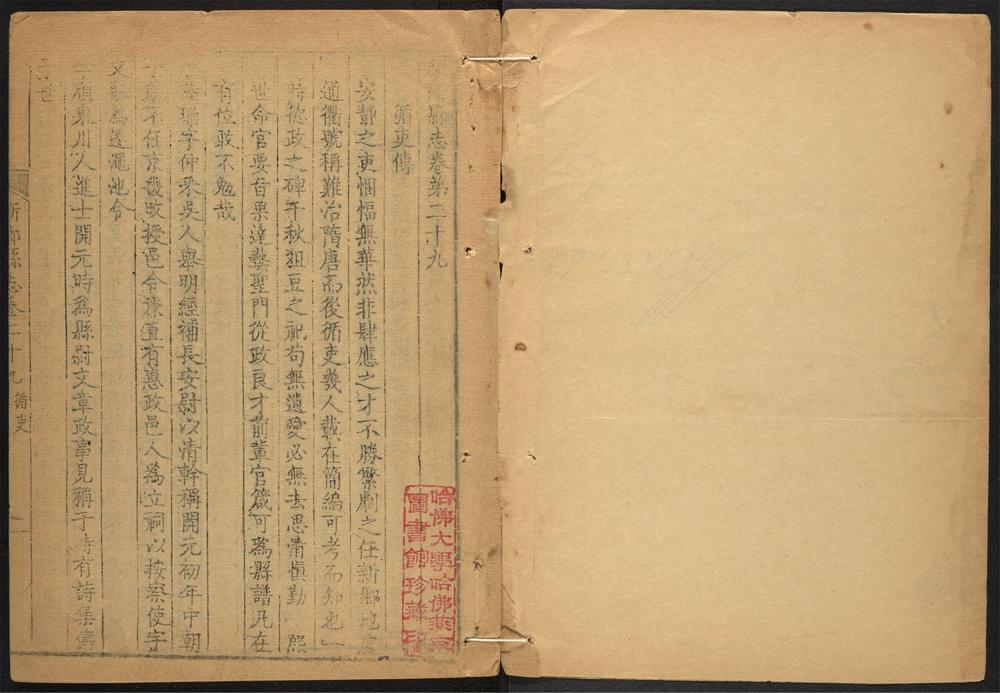 縣志卷第二十九
循吏傳
安靜之吏悃愊無華然非肆應之才不勝繁劇之任新鄉地
通衢號稱難治隋唐而後循吏幾人載在簡編可考而知也
時德政之碑千秋俎豆之祀苟無遺愛必無去思清慎勤 熙
世命官要旨果達藝聖門從政良才前輩官箴可為縣譜凡在
有位敢不勉哉
字仲采吳人舉明經補長安尉以清幹稱開元初年中朝
不任京畿改授邑令廉直有惠政邑人為立祠以按察使宇
文 為 澠池令
頎東川人進士開元時為縣尉文章政事見稱于時有詩集傳
于世
新鄉縣志卷二十九 循吏 一
哈佛大學哈佛燕京
圖書館珍藏印